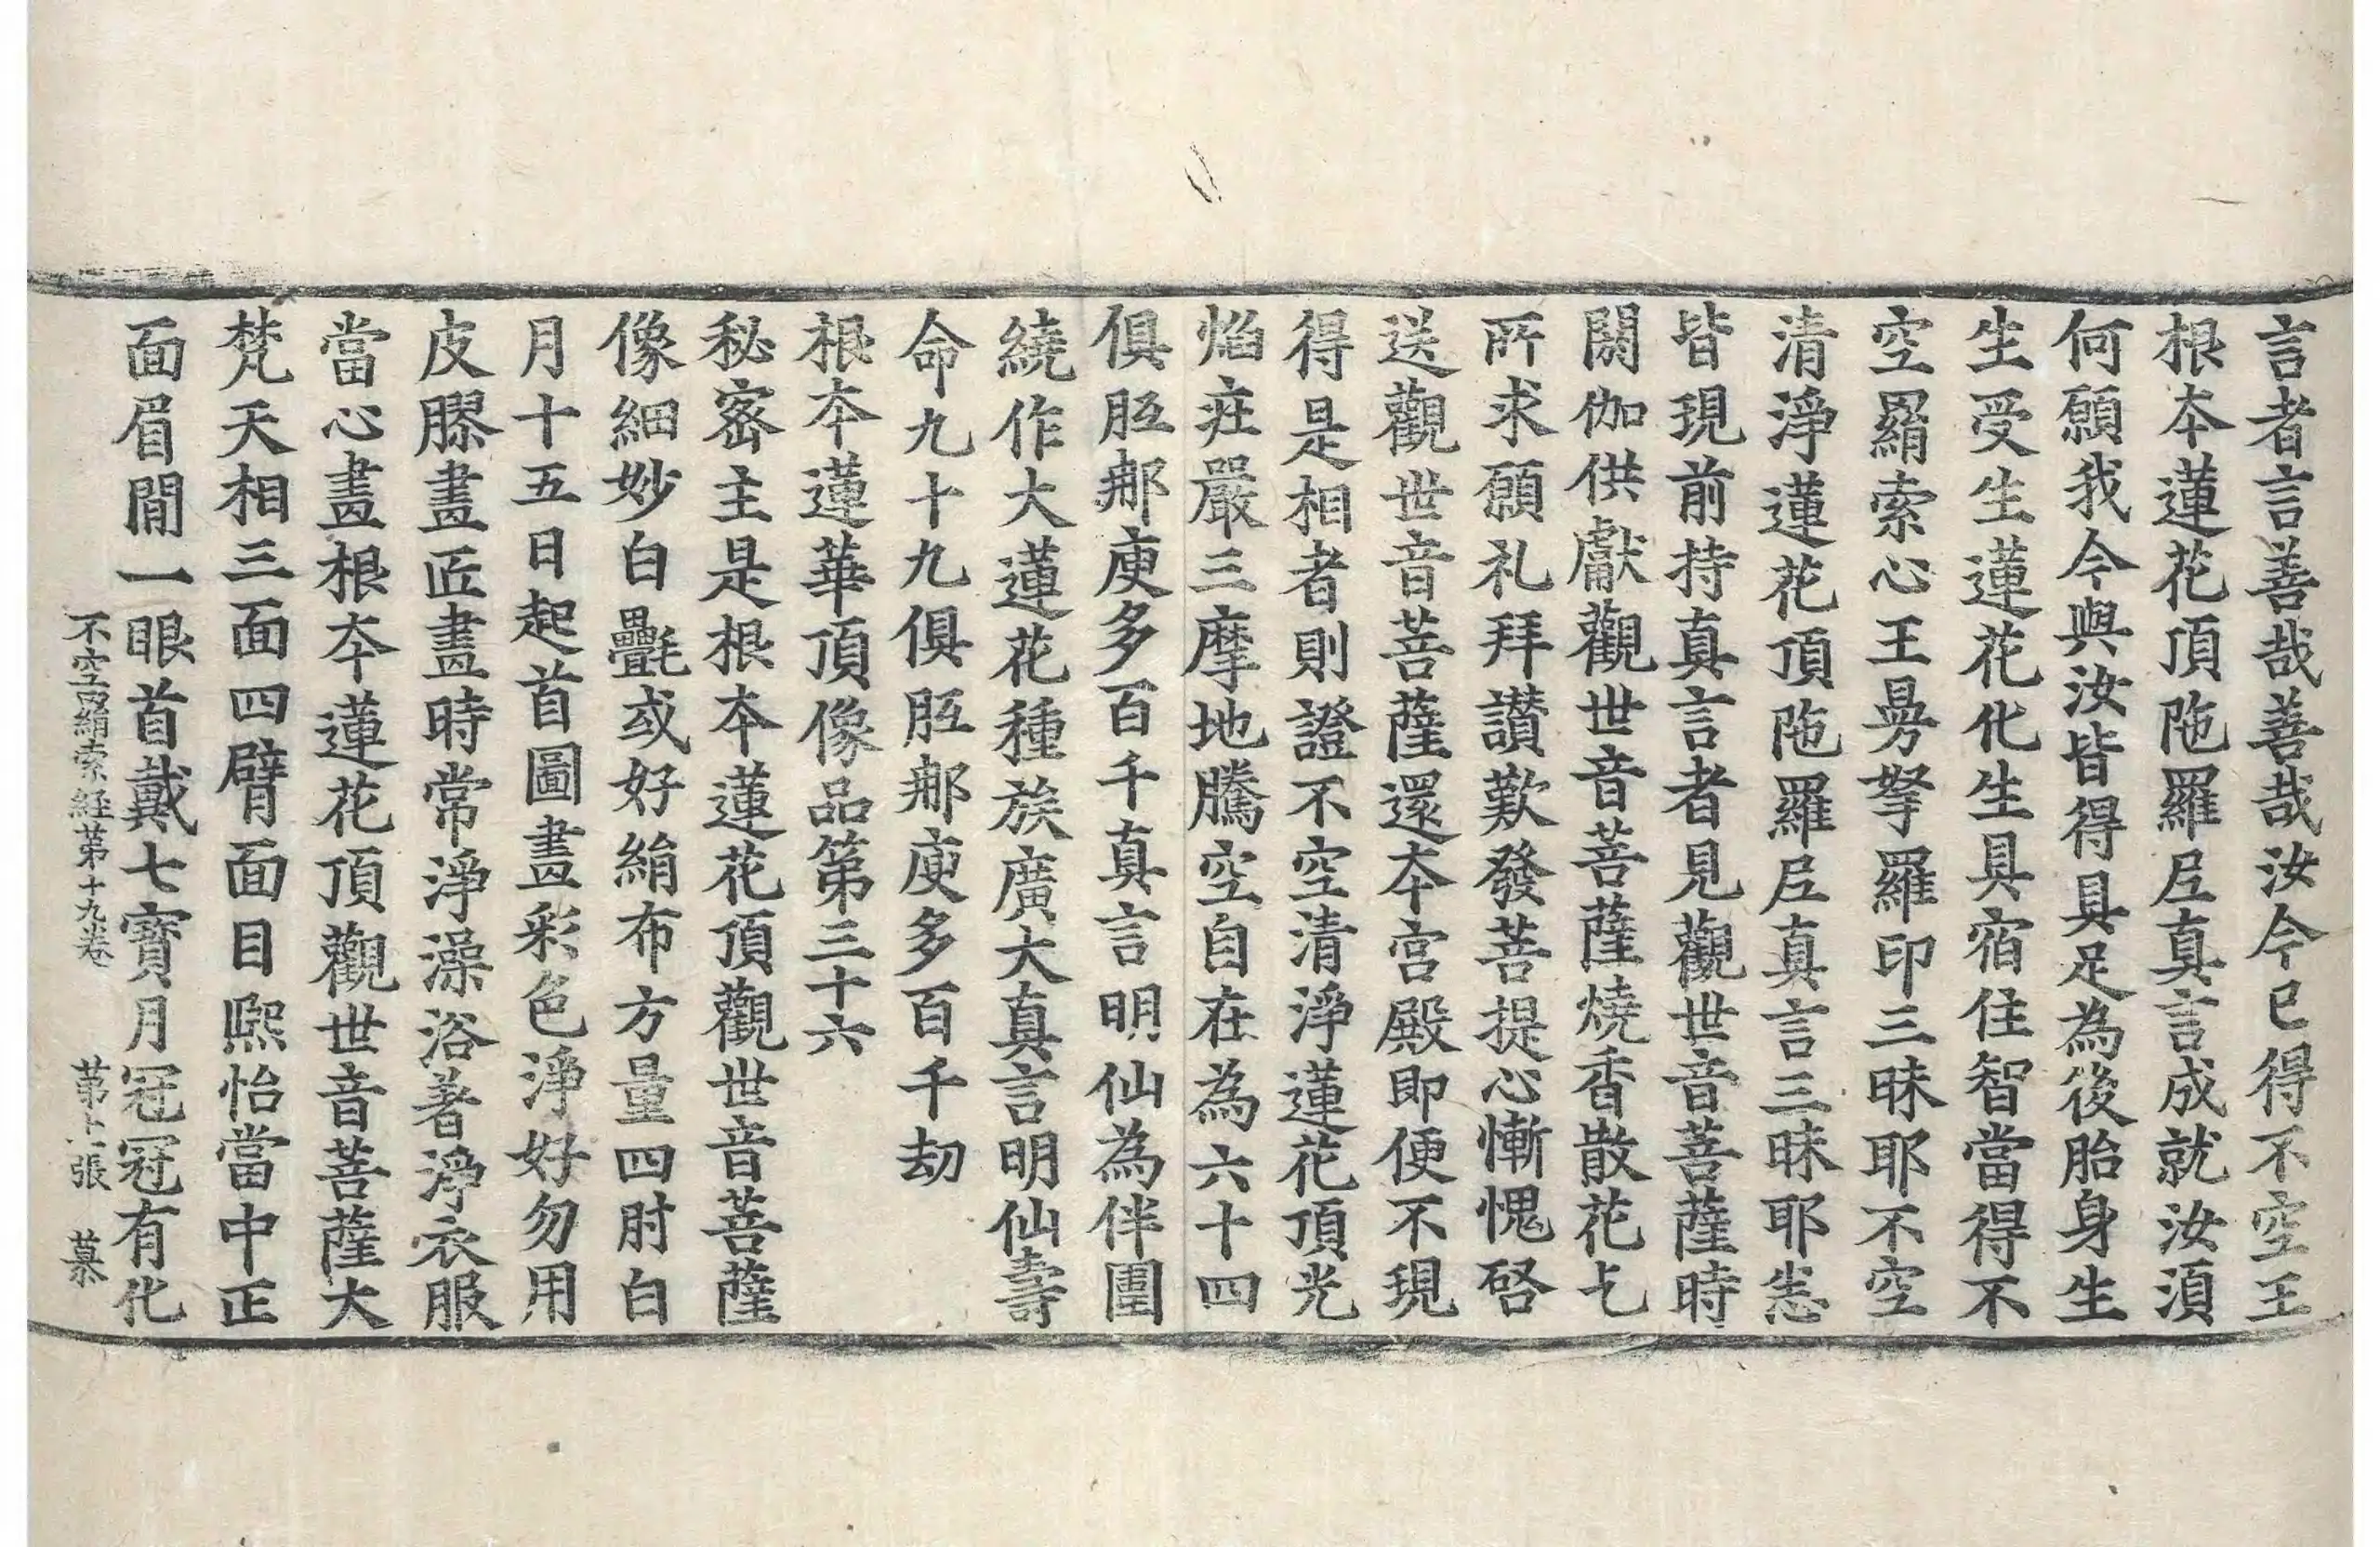 言者言善哉善哉汝今已得不空王
根本蓮花頂陁羅尼真言成就汝須
何願我今與汝皆得具足為後胎身生
生受生生蓮花化生具宿住智當得不
空羂索心王曼拏羅印三昧耶不空
清淨蓮花頂陁羅尼真言三昧耶悉
皆現前持真言者見觀世音菩薩時
閼伽供獻觀世音菩薩燒香散花乞
所求願礼拜讃歎發菩提心慚愧啓
送觀世音菩薩還本宮殿即便不現
得是相者則證不空清淨蓮花頂光
焰庄嚴三摩地騰空自在為六十四
俱胝那庾多百千真言明仙為伴圍
繞作大蓮花種族廣大真言明仙壽
命九十九俱胝那庾多百千劫
根本蓮華頂像品第三十六
秘密主是根本蓮花頂觀世音菩薩
像細妙白㲲或好絹布方量四肘白
月十五日起首圖畫彩色淨好勿用
皮膠畫匠畫時常淨澡浴著淨衣服
當心畫根本蓮花頂觀世音菩薩大
梵天相三面四臂面目熙怡當中正
面眉間一眼首戴七寶月冠冠有化
不空羂索経苐十九卷 苐十張 慕